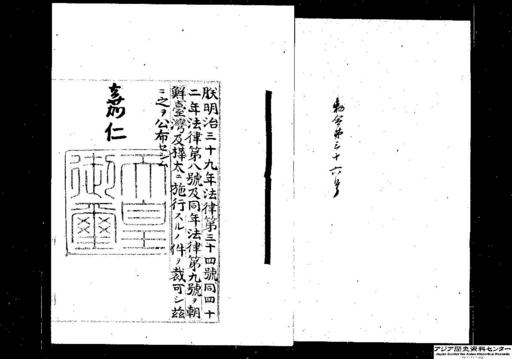 勅令第三十六号
朕明治三十九年法律第三十四號同四十
二年法律第八號及同年法律第九號ヲ朝
鮮臺灣及樺太ニ施行スルノ件ヲ裁可シ茲
ニ之ヲ公布セシム
嘉仁
天皇
御璽
アジア歴史資料センター
Japan Center for Asian Historical Records